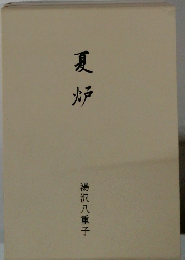 夏炉
湯沢八重子